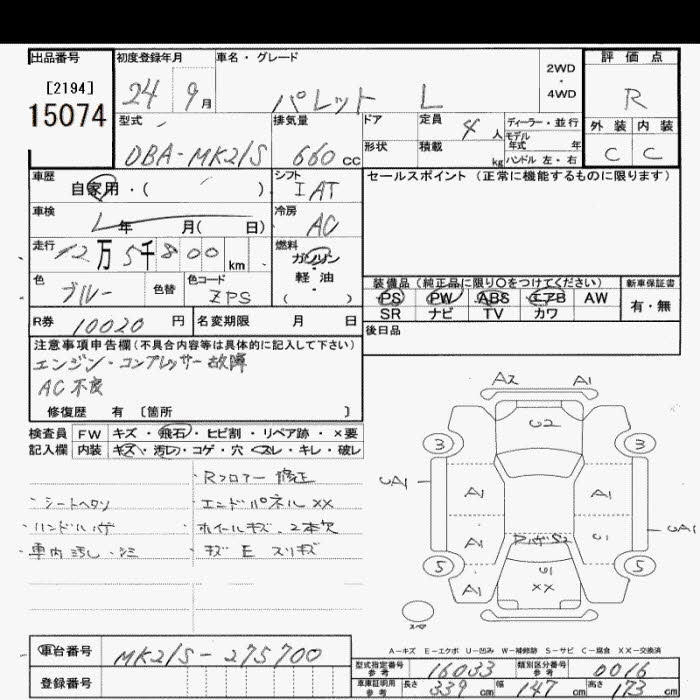 出品番号
[2194]
15074
初度登録年月
24 9月
車名・グレード
パレット L
2WD
・
4WD
評価点
R
外装 内装
C C
型式
DBA-MK21S
排気量
660 cc
ドア
形状
定員 4 人
積載 kg
ディーラー・並行
モデル
年式 年
ハンドル 左・右
車歴
自家用・( )
シフト
IAT
セールスポイント (正常に機能するものに限ります)
車検
年 月( 日)
冷房
AC
走行
12万5千800km
燃料
ガソリン
軽・油
( )
色
ブルー
色替
色コード
ZPS
装備品 (純正品に限り○をつけてください)
PS PW ABS エアB AW
SR ナビ TV カワ
新車保証書
有・無
R券 10020 円
名変期限 月 日
後日品
注意事項申告欄 (不具合内容等は具体的に記入して下さい)
エンジン・コンプレッサー故障
AC不良
修復歴 有 〔箇所 〕
検査員 FW キズ・飛石・ヒビ割・リペア跡・×要
記入欄 内装 キズ・汚レ・コゲ・穴・スレ・キレ・破レ
・Rフロアー修正
・シートヘタリ
・エンドパネルXX
・ハンドルハゲ
・ホイールキズ、2本欠
・車内汚レ・シミ
・キズE スリキズ
A2 A1
U2
3 3
UA1
A1 A1
UA1
A1
5 5
A1
XX
スペア
A-キズ E-エクボ U-凹み W-補修跡 S-サビ C-腐食 XX-交換済
車台番号 MK21S-275700
登録番号
型式指定番号
参考
16033
類別区分番号
参考
0016
車庫証明用
参考
長さ 339 cm 幅 147 cm 高さ 173 cm